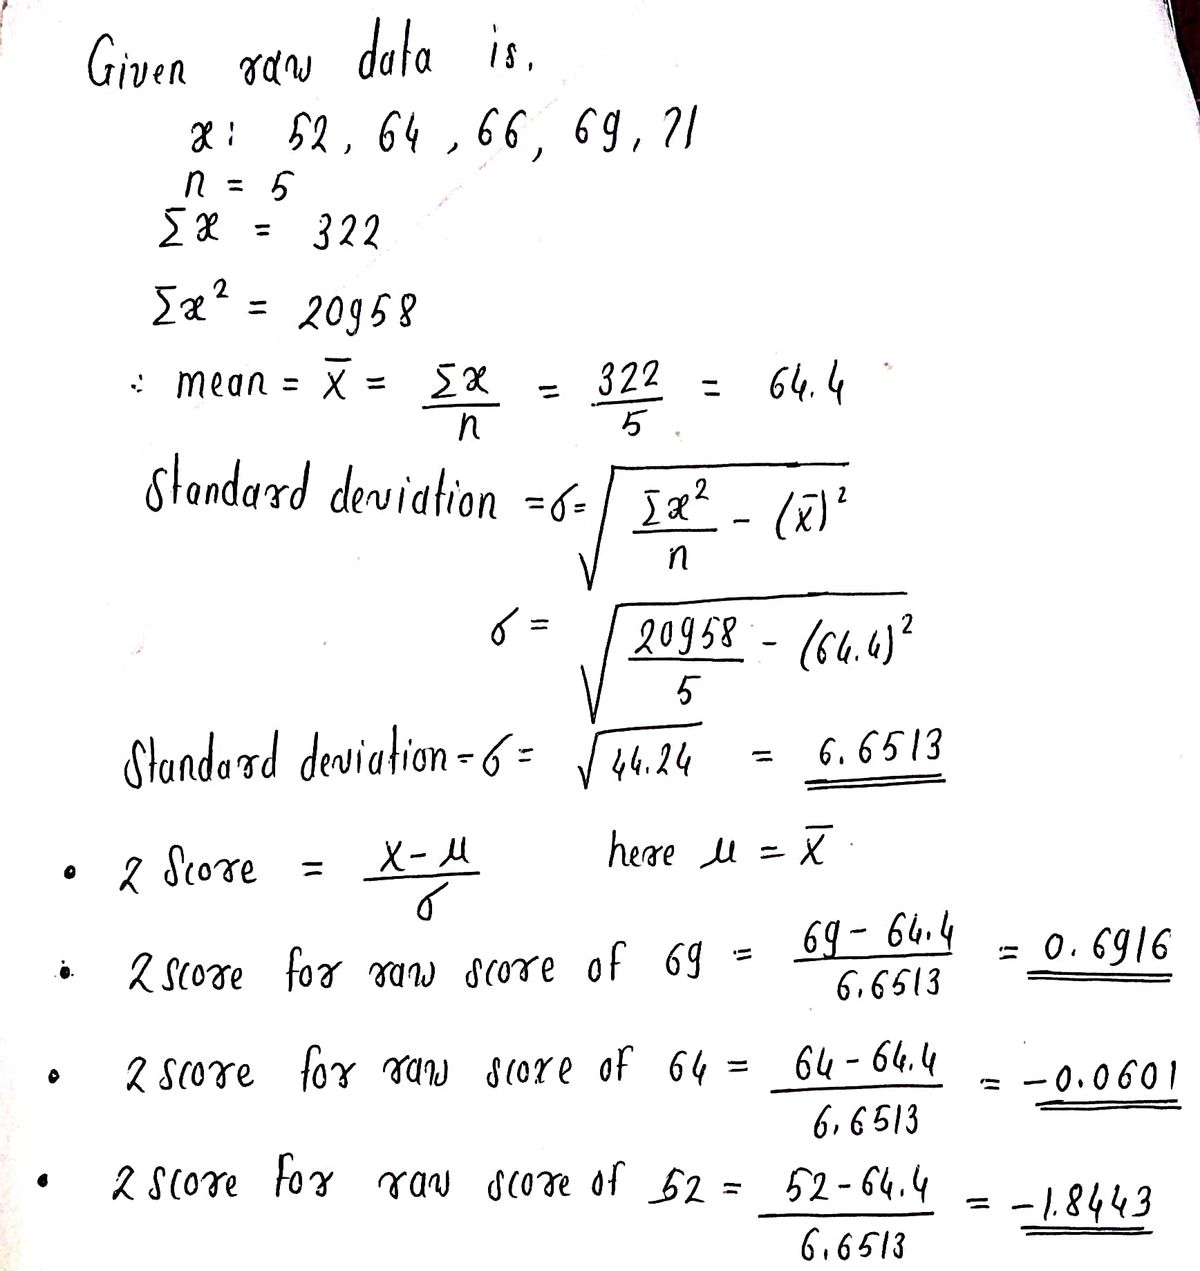 Given raw data is.
x: 52, 64, 66, 69, 71
n = 5
Σx = 322
Σx² = 20958
∴ mean = x̄ = Σx/n = 322/5 = 64.4
Standard deviation = σ = √(Σx²/n - (x̄)²)
σ = √(20958/5 - (64.4)²)
Standard deviation = σ = √44.24 = 6.6513
• Z Score = (X - μ)/σ here μ = X̄
∴ Z score for raw score of 69 = (69 - 64.4)/6.6513 = 0.6916
• Z score for raw score of 64 = (64 - 64.4)/6.6513 = -0.0601
• Z score for raw score of 52 = (52 - 64.4)/6.6513 = -1.8443